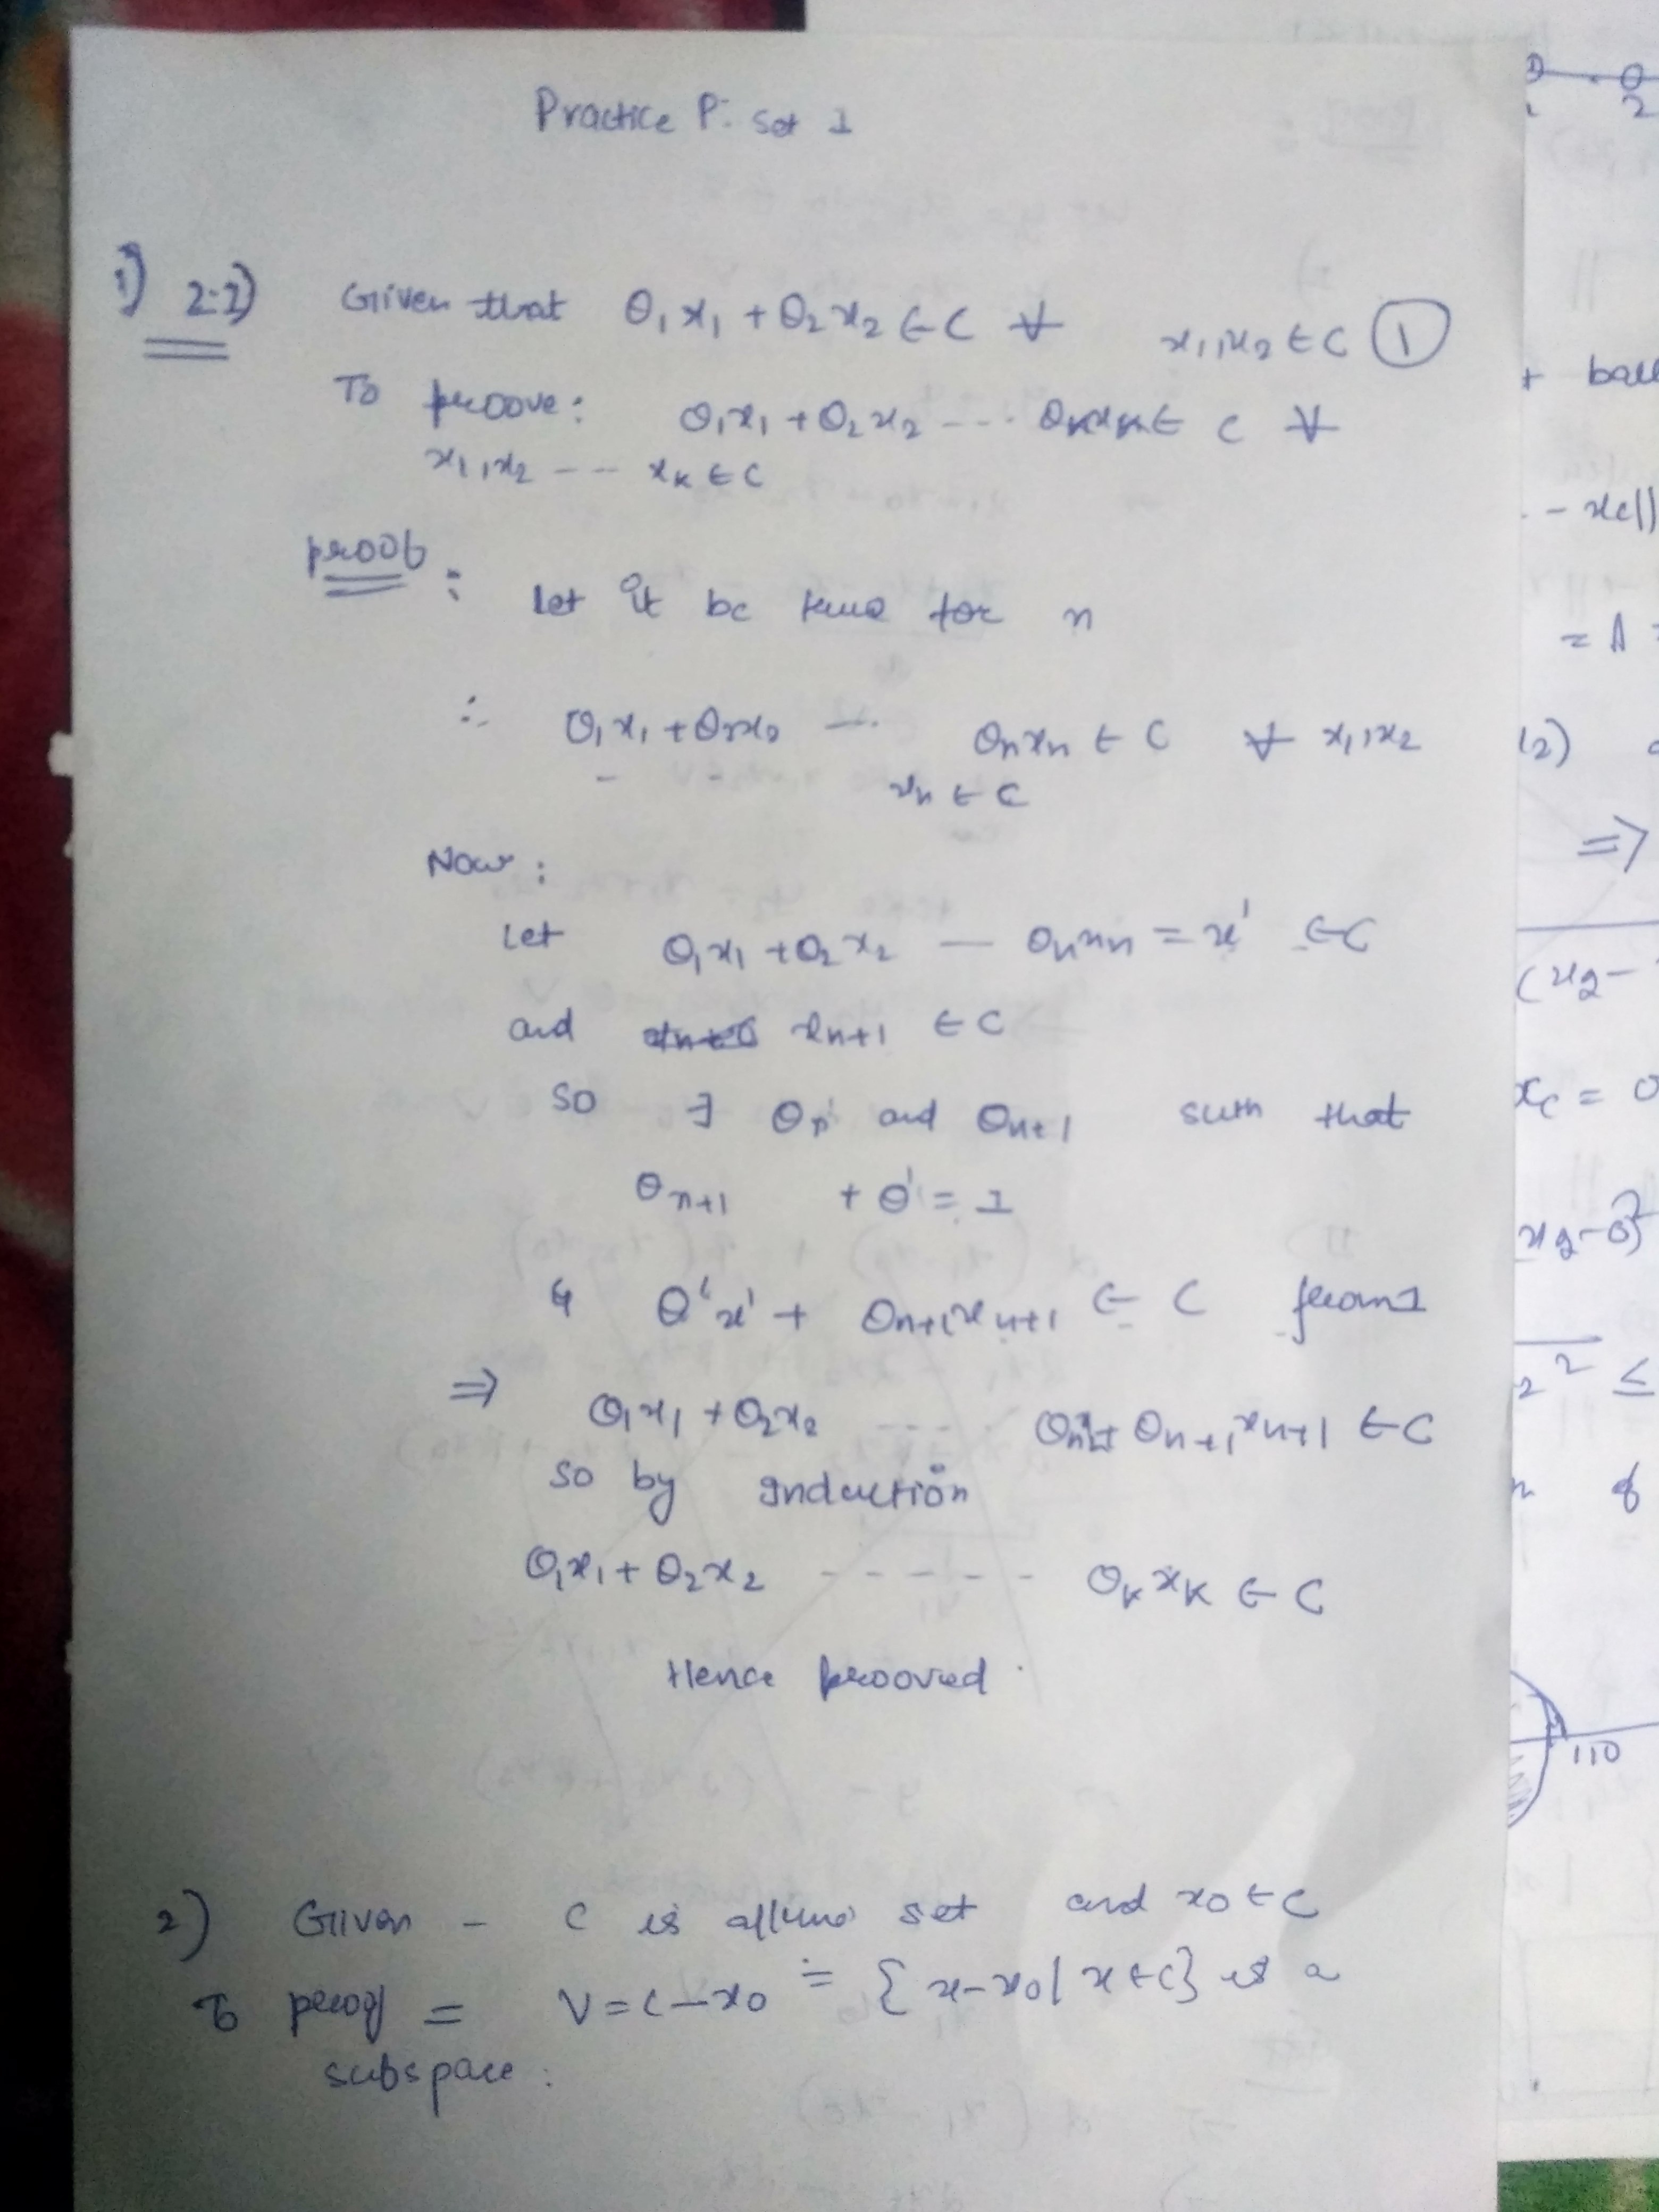 Practice P. Set 1
1) 2.2) Given that θ₁x₁ + θ₂x₂ ∈ C ∀ x₁,x₂ ∈ C ①
To proove: θ₁x₁ + θ₂x₂ ---- θₖxₖ ∈ C ∀
x₁,x₂ --- xₖ ∈ C
proof :
let it be true for n
∴ θ₁x₁ + θ₂x₂ --- θₙxₙ ∈ C ∀ x₁,x₂
xₙ ∈ C
Now :
Let θ₁x₁ + θ₂x₂ — θₙxₙ = x' ∈ C
and xₙ₊₁ ∈ C
so ∃ θ' and θₙ₊₁ such that
θₙ₊₁ + θ' = 1
& θ'x' + θₙ₊₁xₙ₊₁ ∈ C from 1
⇒ θ₁x₁ + θ₂x₂ ---- θₙxₙ + θₙ₊₁xₙ₊₁ ∈ C
so by induction
θ₁x₁ + θ₂x₂ ------ θₖxₖ ∈ C
Hence prooved.
2) Given - C is affine set and x₀ ∈ C
To proof = V = C - x₀ = {x - x₀ | x ∈ C} is a
subspace.
2
+ ball
- xc||
= A
(2)
⇒
(x₂ -
xc = 0
x₂ - 0)²
2² ≤
110